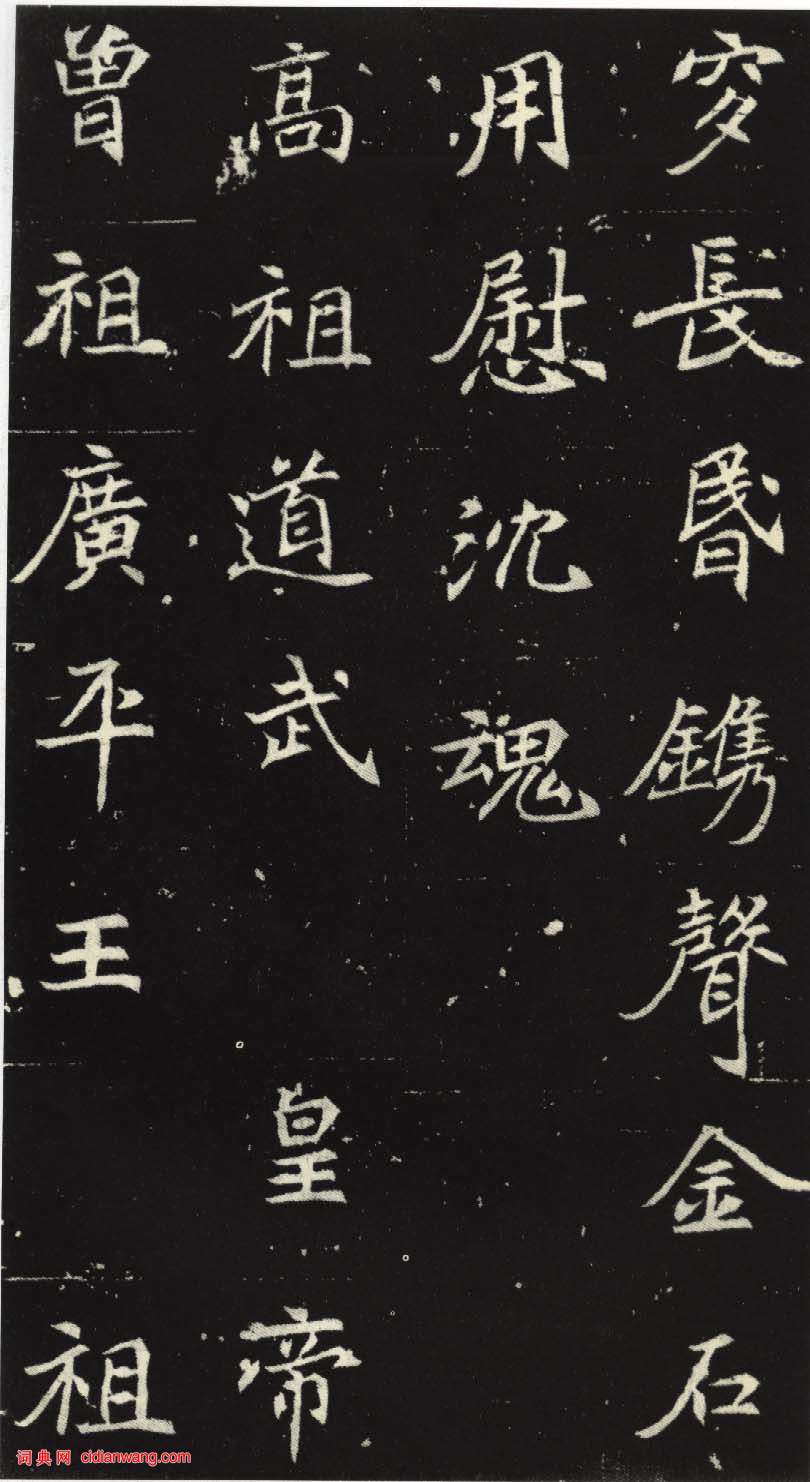 穸長昬鐫聲金石
用慰沈魂
高祖道武皇帝
曾祖廣平王祖
词典网 cidianwang.com